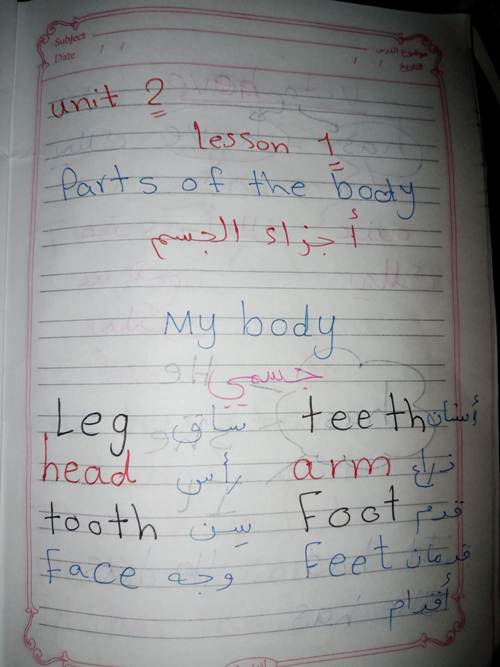 Subject
موضوع الدرس
Date / /
التاريخ / /
unit 2
Lesson 1
Parts of the body
أجزاء الجسم
My body
جسمي
Leg ساق teeth أسنان
head رأس arm ذراع
tooth سن Foot قدم
Face وجه Feet قدمان
أقدام